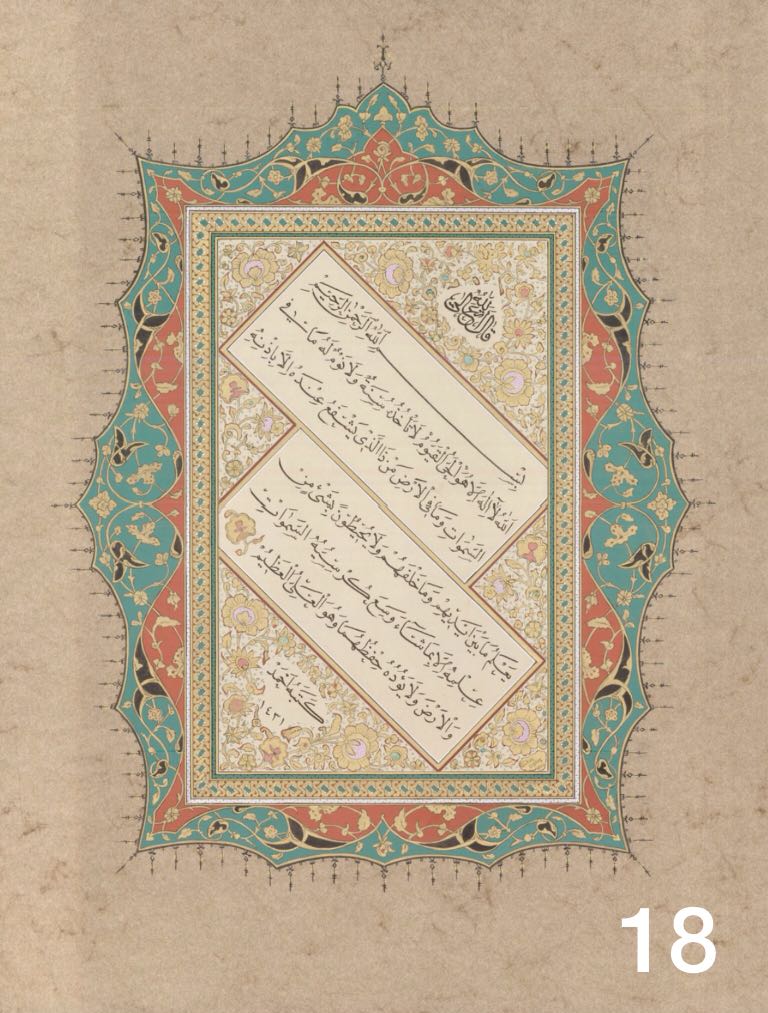 بِسْمِ اللهِ الرَّحْمٰنِ الرَّحِيْمِ
اَللهُ لَا اِلٰهَ اِلَّا هُوَ الْحَيُّ الْقَيُّوْمُ لَا تَأْخُذُهُ سِنَةٌ وَلَا نَوْمٌ لَهُ مَا فِي
السَّمٰوَاتِ وَمَا فِي الْاَرْضِ مَنْ ذَا الَّذِيْ يَشْفَعُ عِنْدَهُ اِلَّا بِاِذْنِهِ
يَعْلَمُ مَا بَيْنَ اَيْدِيْهِمْ وَمَا خَلْفَهُمْ وَلَا يُحِيْطُوْنَ بِشَيْءٍ مِنْ
عِلْمِهِ اِلَّا بِمَا شَاءَ وَسِعَ كُرْسِيُّهُ السَّمٰوَاتِ
وَالْاَرْضَ وَلَا يَؤُدُهُ حِفْظُهُمَا وَهُوَ الْعَلِيُّ الْعَظِيْمُ
كتبه احمد
١٤٣١
18